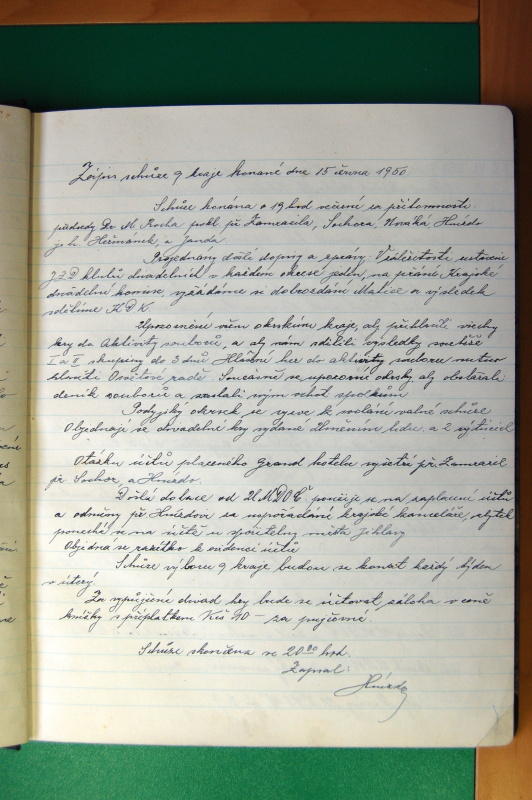 Zápis schůze 9 kraje konané dne 15 června 1950
Schůze konána o 19 hod večerní za přítomnosti
předsedy Dr M. Rocha pokl. př Zamrazila, Sochora, Nováka Hnízdo
j. h. Heřmánek, a Janda
Projednány došlé dopisy a zprávy: V záležitosti ustavení
JZD klubů divadelních v každém okrese jeden, na přání Krajské
divadelní komise, vyžádáme si dobrozdání Matice a výsledek
sdělíme KDK.
Upozornění všem okrskům kraje, aby přihlásili všechy
hry do Aktivity souborů, a aby nám sdělili výsledky soutěže
I a II skupiny do 3 dnů Hlášení her do aktivity souboru nutno
hlásiti Osvětové radě. Současně se upozorní okrsky aby obstarali
deník souborů a zaslali svým ochot. spolkům
Podyjský okrsek, se vyzve k svolání valné schůze
Objednají se divadelní hry vydané Uměním lidu a 2 výtiscích
Otázku účtů placeného Grand hotelu vyšetří př. Zamrazil
př. Sochor, a Hnízdo.
Došlá dotace od ÚMDOČ použije se na zaplacení účtů
a odměny př. Hnízdovi za uspořádání krajské kanceláře, zbytek
ponechá se na účtě u spořitelny města Jihlavy
Objedna se razítko k evidenci účtů
Schůze výboru 9 kraje budou se konat každý týden
v úterý.
Za vypůjčení divad hry bude se účtovat záloha v ceně
knížky s příplatkem Kčs 10 – za půjčené
Schůze skončena ve 20⁰⁰ hod.
Zapsal:
Hnízdo